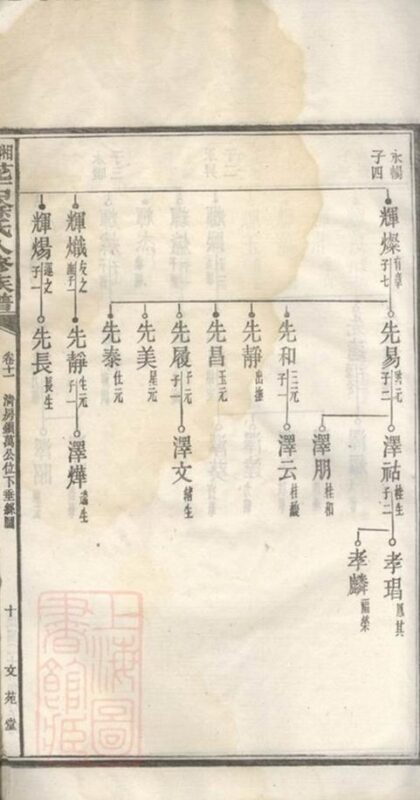 永暢
子四
輝燦 有章 子七
先易 洪元 子二
澤祜 桂生 子二
孝琩 鳳其
孝麟 福榮
澤朋 桂和
先和 三元 子一
澤云 桂馥
先靜 出撫
先昌 玉元
先履 于元 子一
澤文 緒生
先美 星元
先泰 仕元
輝熾 友之
先靜 生元 子一
澤燁 遠生
輝煬 運之 子一
先長 長生
湘
氏八修族譜
卷十一
清房鎮萬公位下垂絲圖
十
文苑堂
上海圖
書館藏